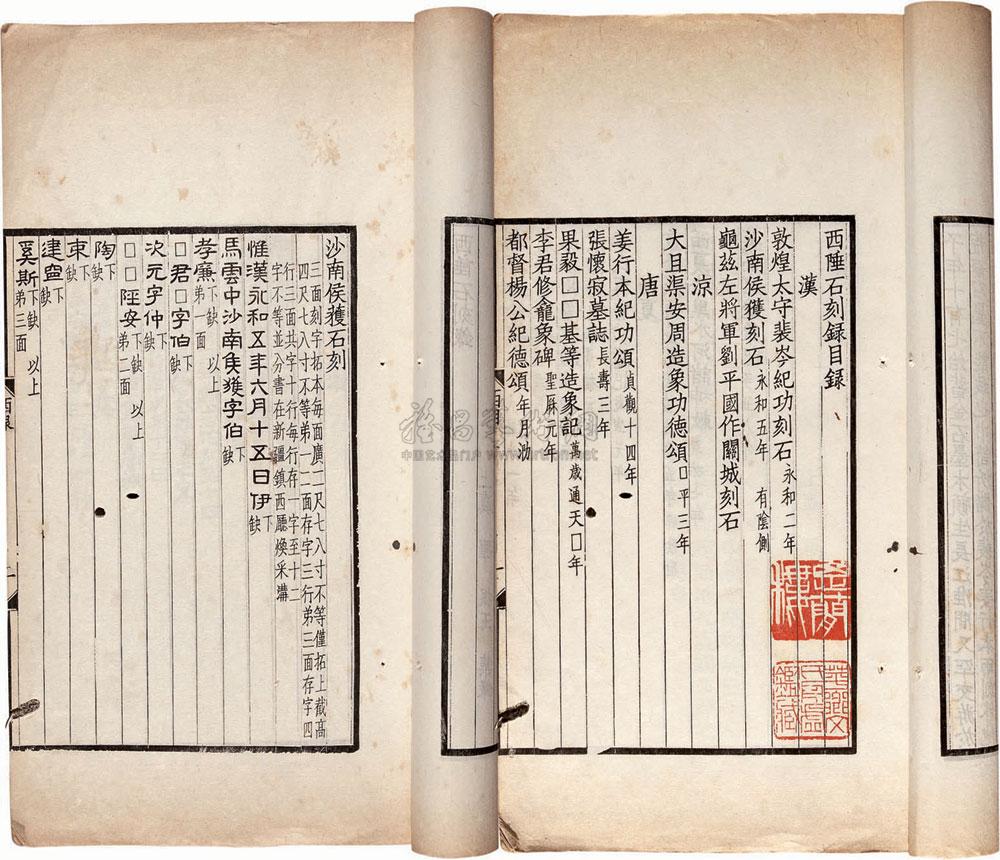 西陲石刻录目録
漢
敦煌太守裴岑紀功刻石永和二年
沙南侯獲刻石永和五年 有陰側
龜兹左將軍劉平國作關城刻石
涼
大且渠安周造象功徳頌□平三年
唐
姜行本紀功頌貞觀十四年
張懷寂墓誌長壽三年
果毅□□基等造象記萬歲通天□年
李君修龕象碑聖厤元年
都督楊公紀德頌年月泐
沙南侯獲石刻
三面刻字拓本每面廣二尺七八寸不等僅拓上截高
四尺七八寸不等弟一二面存字三行弟三面存字四
行三面共字十行每行存一字至十二
字不等並分書在新疆鎮西廳煥采溝
惟漢永和五年六月十五日伊下缺
馬雲中沙南侯獲字伯下缺
孝廉下缺 以上弟一面
□君□字伯下缺
次元字仲下缺
□□陘安下缺 以上弟二面
陶下缺
東下缺
建寍下缺
奚斯下缺 以上弟三面